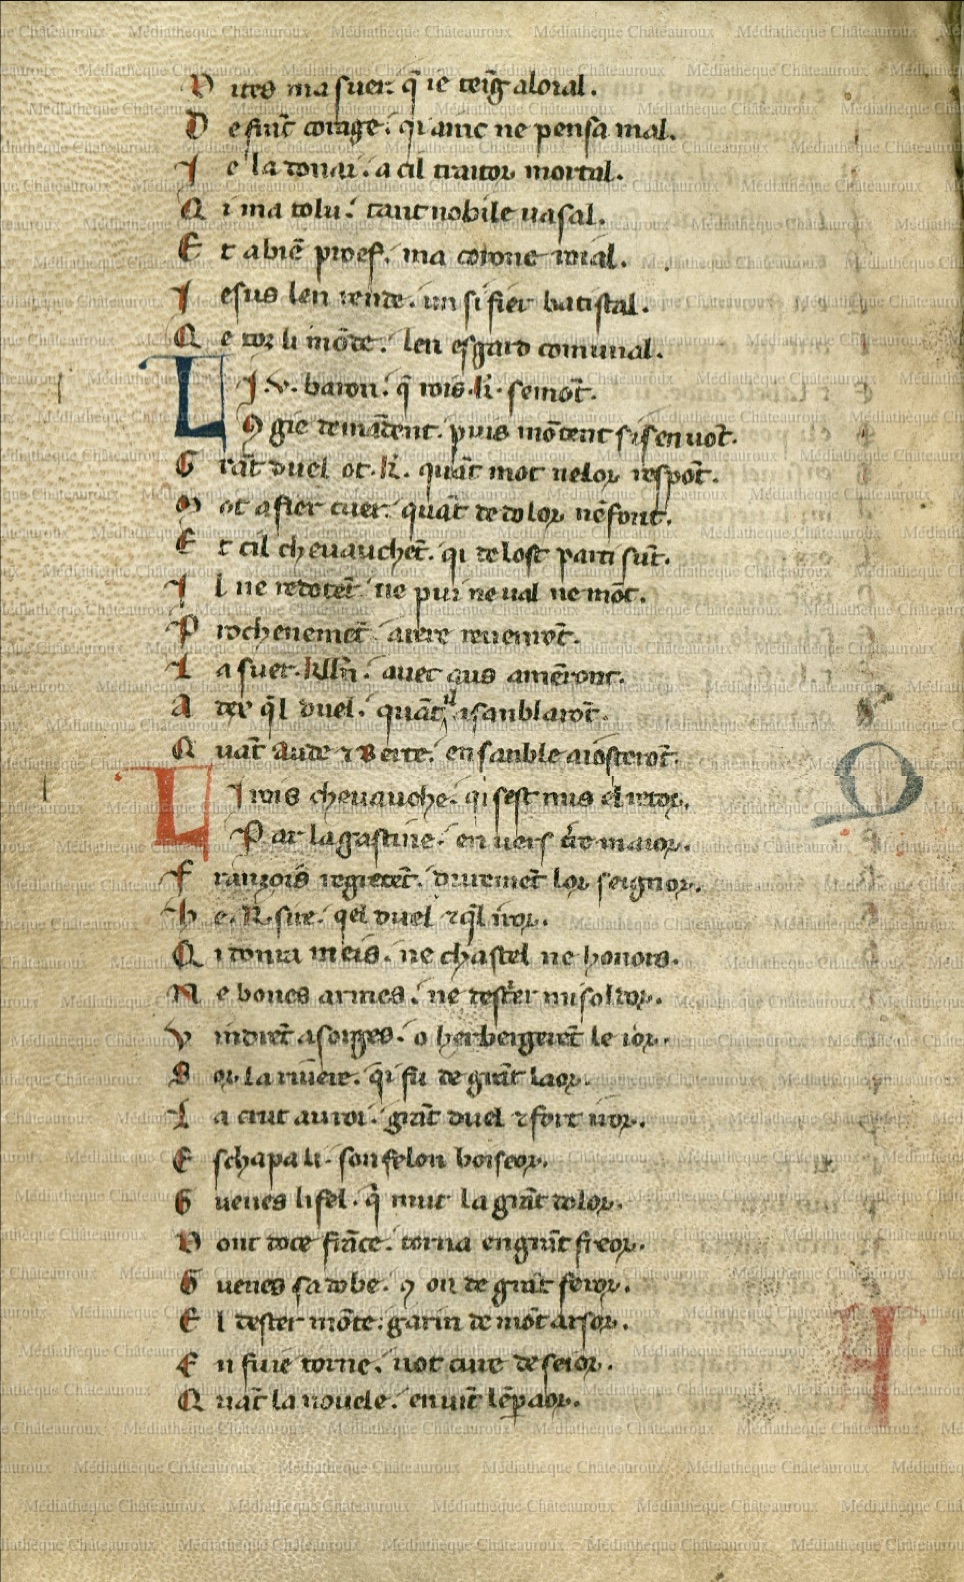 D ites ma suer. q̄ ie teiḡ aloial.
D e fint̄ corage. qi ainc ne pensa mal.
J e la donai. a cil traitor mortal.
Q i ma tolu. tant nobile uasal.
E t abiē proef. ma corone roial.
J esus len rende. un si fier batistal.
Q e toz li mōde. len esgard comunal.
L J .v. baron. q̄ rois .k̄. semōt.
Ogie demādent. puis mōtent si sen uōt.
G rāt duel ot .k̄. quāt mot ne lor respōt.
M ot a fier cuer. quāt de dolor nē font.
E t cil cheuauchēt. qi de lost parti sūt.
J l ne redotēt. ne pui ne ual ne mōt.
P rochenemēt. arere reuenrōt.
L a suer auec aus amēront.
A dex q̄l duel. quāt il asanblarōt.
Q uāt Aude ⁊ Berte. ensanble aiosterōt.
L J rois cheuauche. qi sest mis el retor.
Par la gastine. en uers t̄re maior.
F ranzois regretēt. duremēt lor seignor.
h e .R. sire. qel duel ⁊ q̄l iror.
Q i donra meis. ne chastel ne honors.
N e bones armes. ne dest̄er misoldor.
V indrēt a sorges. o herbergerēt le ior.
S or la riuiere. q̄i fu de grāt laor.
L a crut au roi. grāt duel ⁊ fort iror.
E schapa li. son felon boiseor.
G uenes li fel. q̄ mut la grāt dolor.
D ont doce frāce. torna en grāt freor.
G uenes sadobe. ꝯ on de grāt feror.
E l dester mōte. garin de mōt arsor.
E n fuie torne. not cure de seior.
Q uāt la nouele. en uit lēpaor.